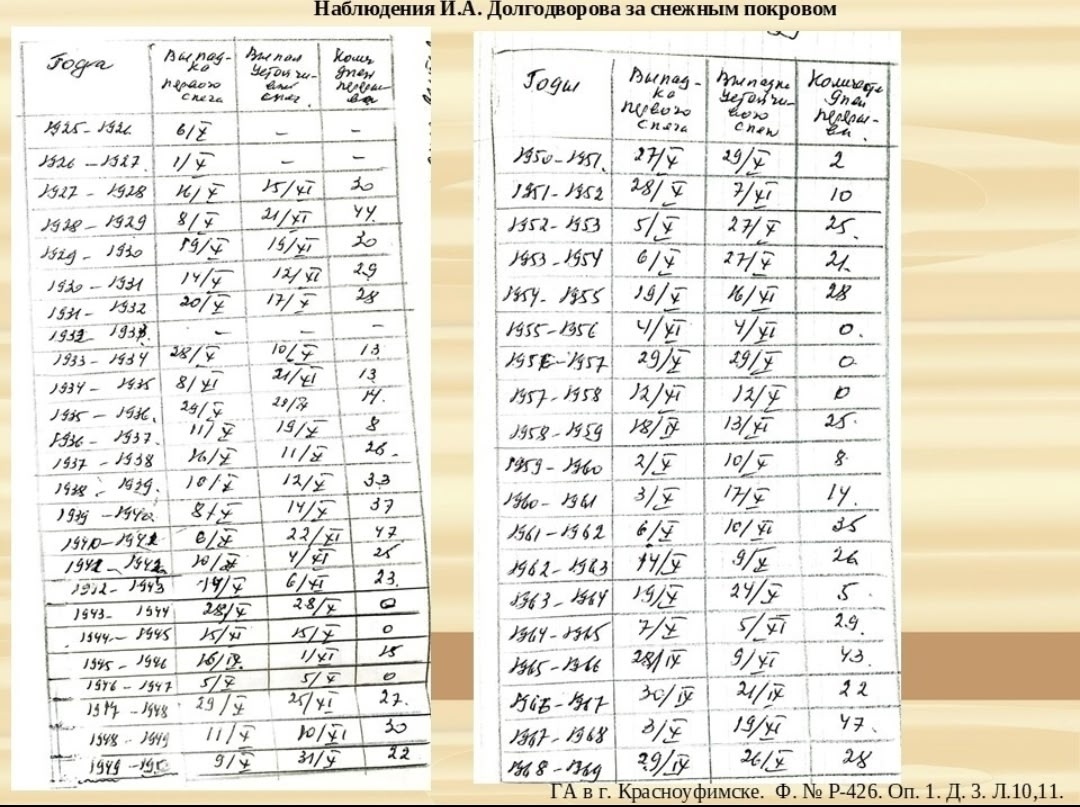 Наблюдения И.А. Долгодворова за снежным покровом
Года Выпад- Выпал Колич
ка Устойчи- дней
первого вый переры-
снега снег. ва
1925-1926 6/X - -
1926-1927 1/X - -
1927-1928 16/X 15/XI 30
1928-1929 8/X 21/XI 44
1929-1930 19/X 19/XI 30
1930-1931 14/X 12/XI 29
1931-1932 20/X 17/X 28
1932 1933. - - -
1933-1934 28/X 10/X 13
1934-1935 8/XI 21/XI 13
1935-1936. 29/X 14.
1936-1937. 11/X 19/X 8
1937-1938 16/X 11/X 26.
1938-1939. 10/X 12/X 33
1939-1940. 8/X 14/X 37
1940-1941 6/X 22/XI 47
1941-1942 10/X 4/XI 25
1942-1943 14/X 6/XI 23.
1943-1944 28/X 28/X 0
1944-1945 15/XI 15/XI 0
1945-1946 16/IX. 1/XI 15
1946-1947 5/X 5/X 0
1947-1948 29/X 25/XI 27.
1948-1949 11/X 10/XI 30
1949-1950 9/X 31/X 22
Годы Выпад- Выпадка Количество
ка Устойчи- дней
первого вого переры-
снега снега ва.
1950-1951. 27/X 29/X 2
1951-1952 28/X 7/XI 10
1952-1953 5/X 27/X 25.
1953-1954 6/X 27/X 21.
1954-1955 19/X 16/XI 28
1955-1956 4/XI 4/XI 0.
1956-1957 29/X 29/X 0.
1957-1958 12/XI 12/X 0
1958-1959 18/IX 13/XI 25.
1959-1960 2/X 10/X 8
1960-1961 3/X 17/X 14.
1961-1962 6/X 10/XI 35
1962-1963 14/X 9/X 26
1963-1964 19/X 24/X 5.
1964-1965 7/X 5/XI 29.
1965-1966 28/IX 9/XI 43.
1966-1967 30/IX 21/IX 22
1967-1968 3/X 19/XI 47.
1968-1969 29/IX 26/X 28
ГА в г. Красноуфимске. Ф. № Р-426. Оп. 1. Д. 3. Л.10,11.